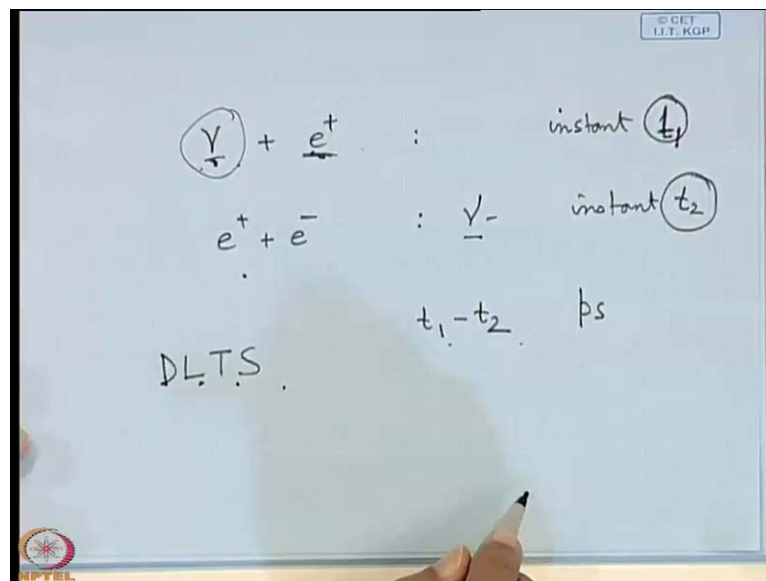 © CET
I.I.T. KGP
γ + e⁺ : instant t₁
e⁺ + e⁻ : γ- instant t₂
t₁ - t₂ ps
DLTS
NPTEL